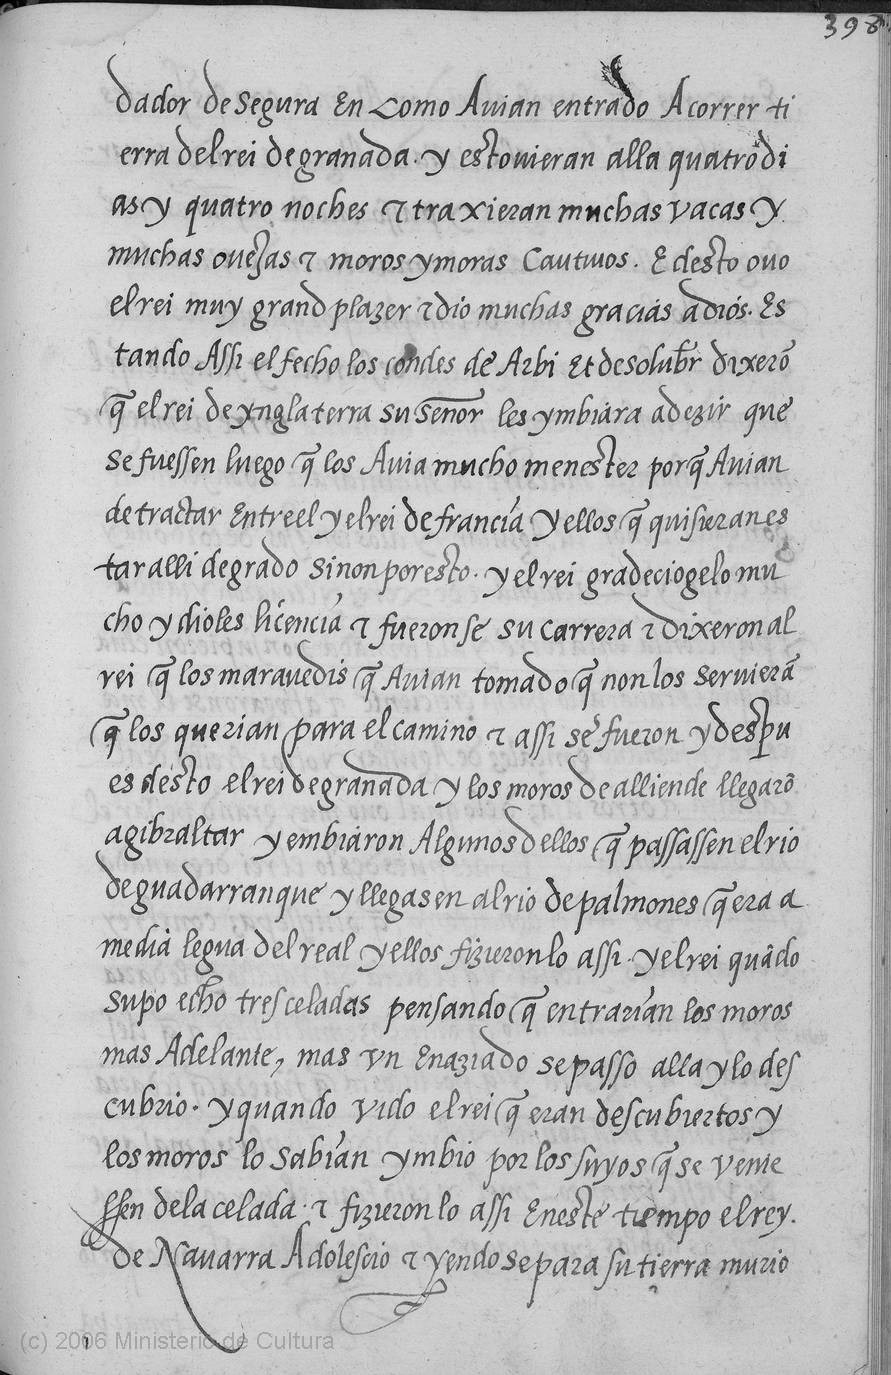 398
dador de segura En como Auian entrado A correr ti
erra del rei de granada. y estouieran alla quatro di
as y quatro noches ⁊ traxieran muchas vacas y
muchas ouejas ⁊ moros y moras Cautiuos. E desto ouo
el rei muy grand plazer ⁊ dio muchas gracias a dios. Es
tando Assi el fecho los condes de Arbi Et de solubr̃ dixerõ
q̃ el rei de ynglaterra su señor les ymbiara a dezir que
se fuessen luego q̃ los Auia mucho menester porq̃ Auian
de tractar Entre el y el rei de francia y ellos q̃ quisieran es
tar alli de grado sinon por esto. y el rei gradeciogelo mu
cho y dioles licencia ⁊ fueron se su carrera ⁊ dixeron al
rei q̃ los marauedis q̃ Auian tomado q̃ non los seruierã
q̃ los querian para el camino ⁊ assi se fueron y despu
es desto el rei de granada y los moros de alliende llegarõ
a gibraltar y embiaron Algunos dellos q̃ passassen el rio
de guadarranque y llegasen al rio de palmones q̃ era a
media legua del real y ellos fizieron lo assi. y el rei quãdo
supo echo tres celadas pensando q̃ entrarian los moros
mas Adelante, mas vn Enaziado se passo alla y lo des
cubrio. y quando vido el rei q̃ eran descubiertos y
los moros lo sabian ymbio por los suyos q̃ se vinie
ssen de la celada. ⁊ fizieron lo assi En este tiempo el rey.
de Nauarra Adolescio ⁊ yendo se para su tierra murio
(c) 2006 Ministerio de Cultura